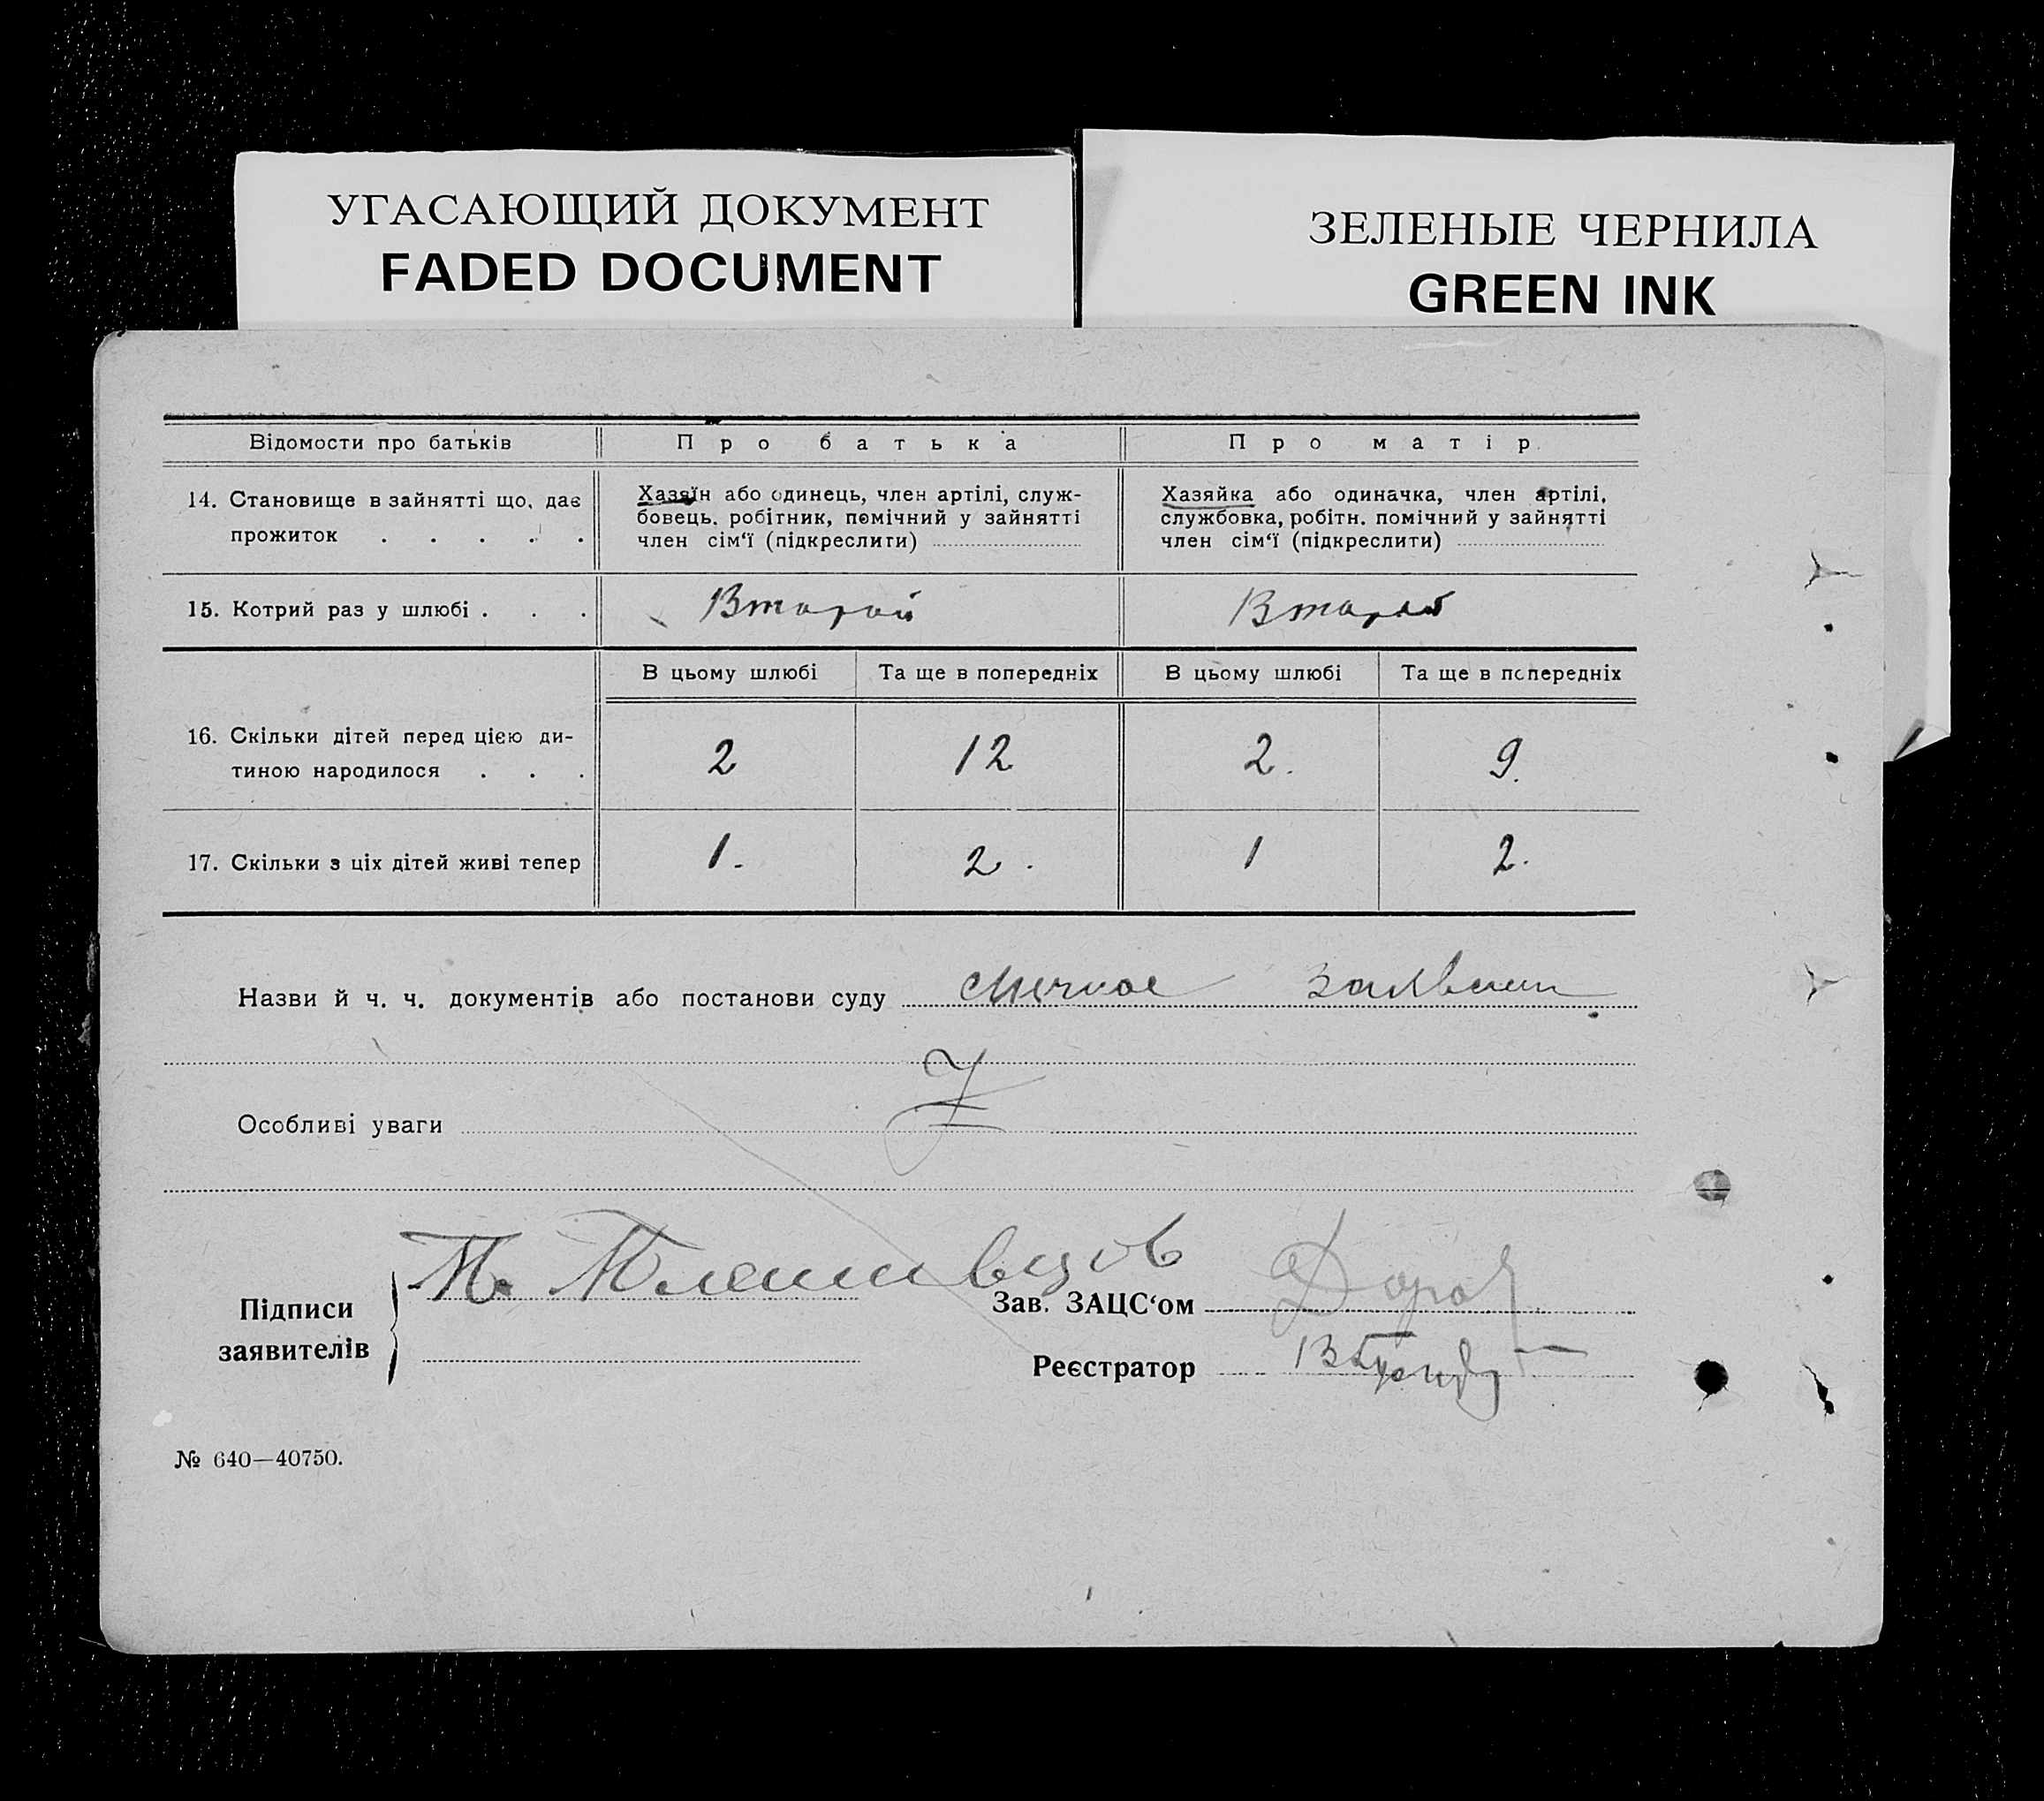 УГАСАЮЩИЙ ДОКУМЕНТ
FADED DOCUMENT
ЗЕЛЕНЫЕ ЧЕРНИЛА
GREEN INK
Відомости про батьків Про батька Про матір
14. Становище в зайнятті що, дає прожиток . . . . .
Хазяїн або одинець, член артілі, служ-
бовець, робітник, помічний у зайнятті
член сім‘ї (підкреслити)
Хазяйка або одиначка, член артілі,
службовка, робітн. помічний у зайнятті
член сім‘ї (підкреслити)
15. Котрий раз у шлюбі . . . Второй Второй
В цьому шлюбі Та ще в попередніх В цьому шлюбі Та ще в попередніх
16. Скільки дітей перед цією ди-
тиною народилося . . . 2 12 2. 9.
17. Скільки з ціх дітей живі тепер 1. 2. 1 2.
Назви й ч. ч. документів або постанови суду личное
Особливі уваги
Підписи
заявителів
Зав. ЗАЦС‘ом
Реєстратор
№ 640—40750.